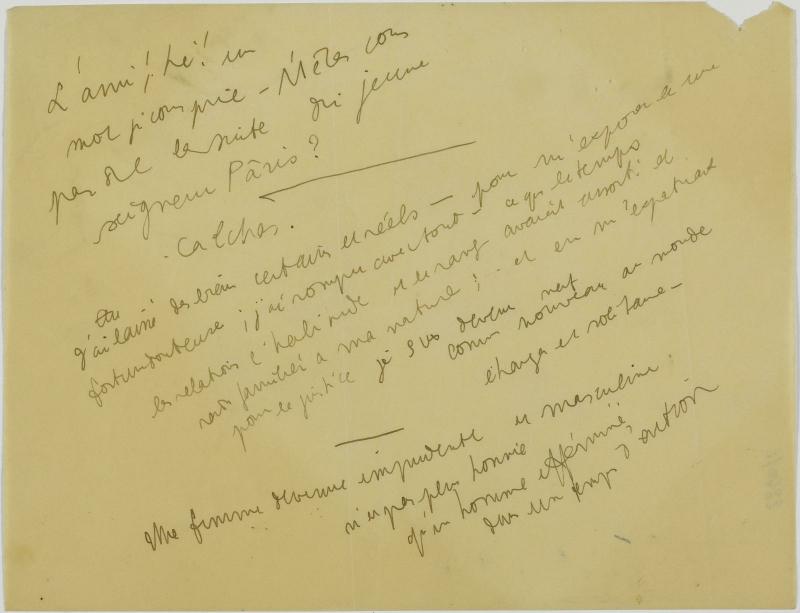 L'ami! hé! un
mot je vous prie – N'êtes vous
pas de la suite du jeune
seigneur Pâris?
Calchas.
j'ai laissé des biens certains et réels – pour m'exposer à une
fortune douteuse; j'ai rompu avec tout – ce que le temps
les relations l'habitude et le rang avaient assorti et
familier à ma nature; – et en m'expatriant
pour la justice je suis devenu neuf
comme nouveau au monde
étranger et solitaire –
Une femme devenue impudente et masculine
n'est pas plus honnie
qu'un homme efféminé,
dans un temps d'action